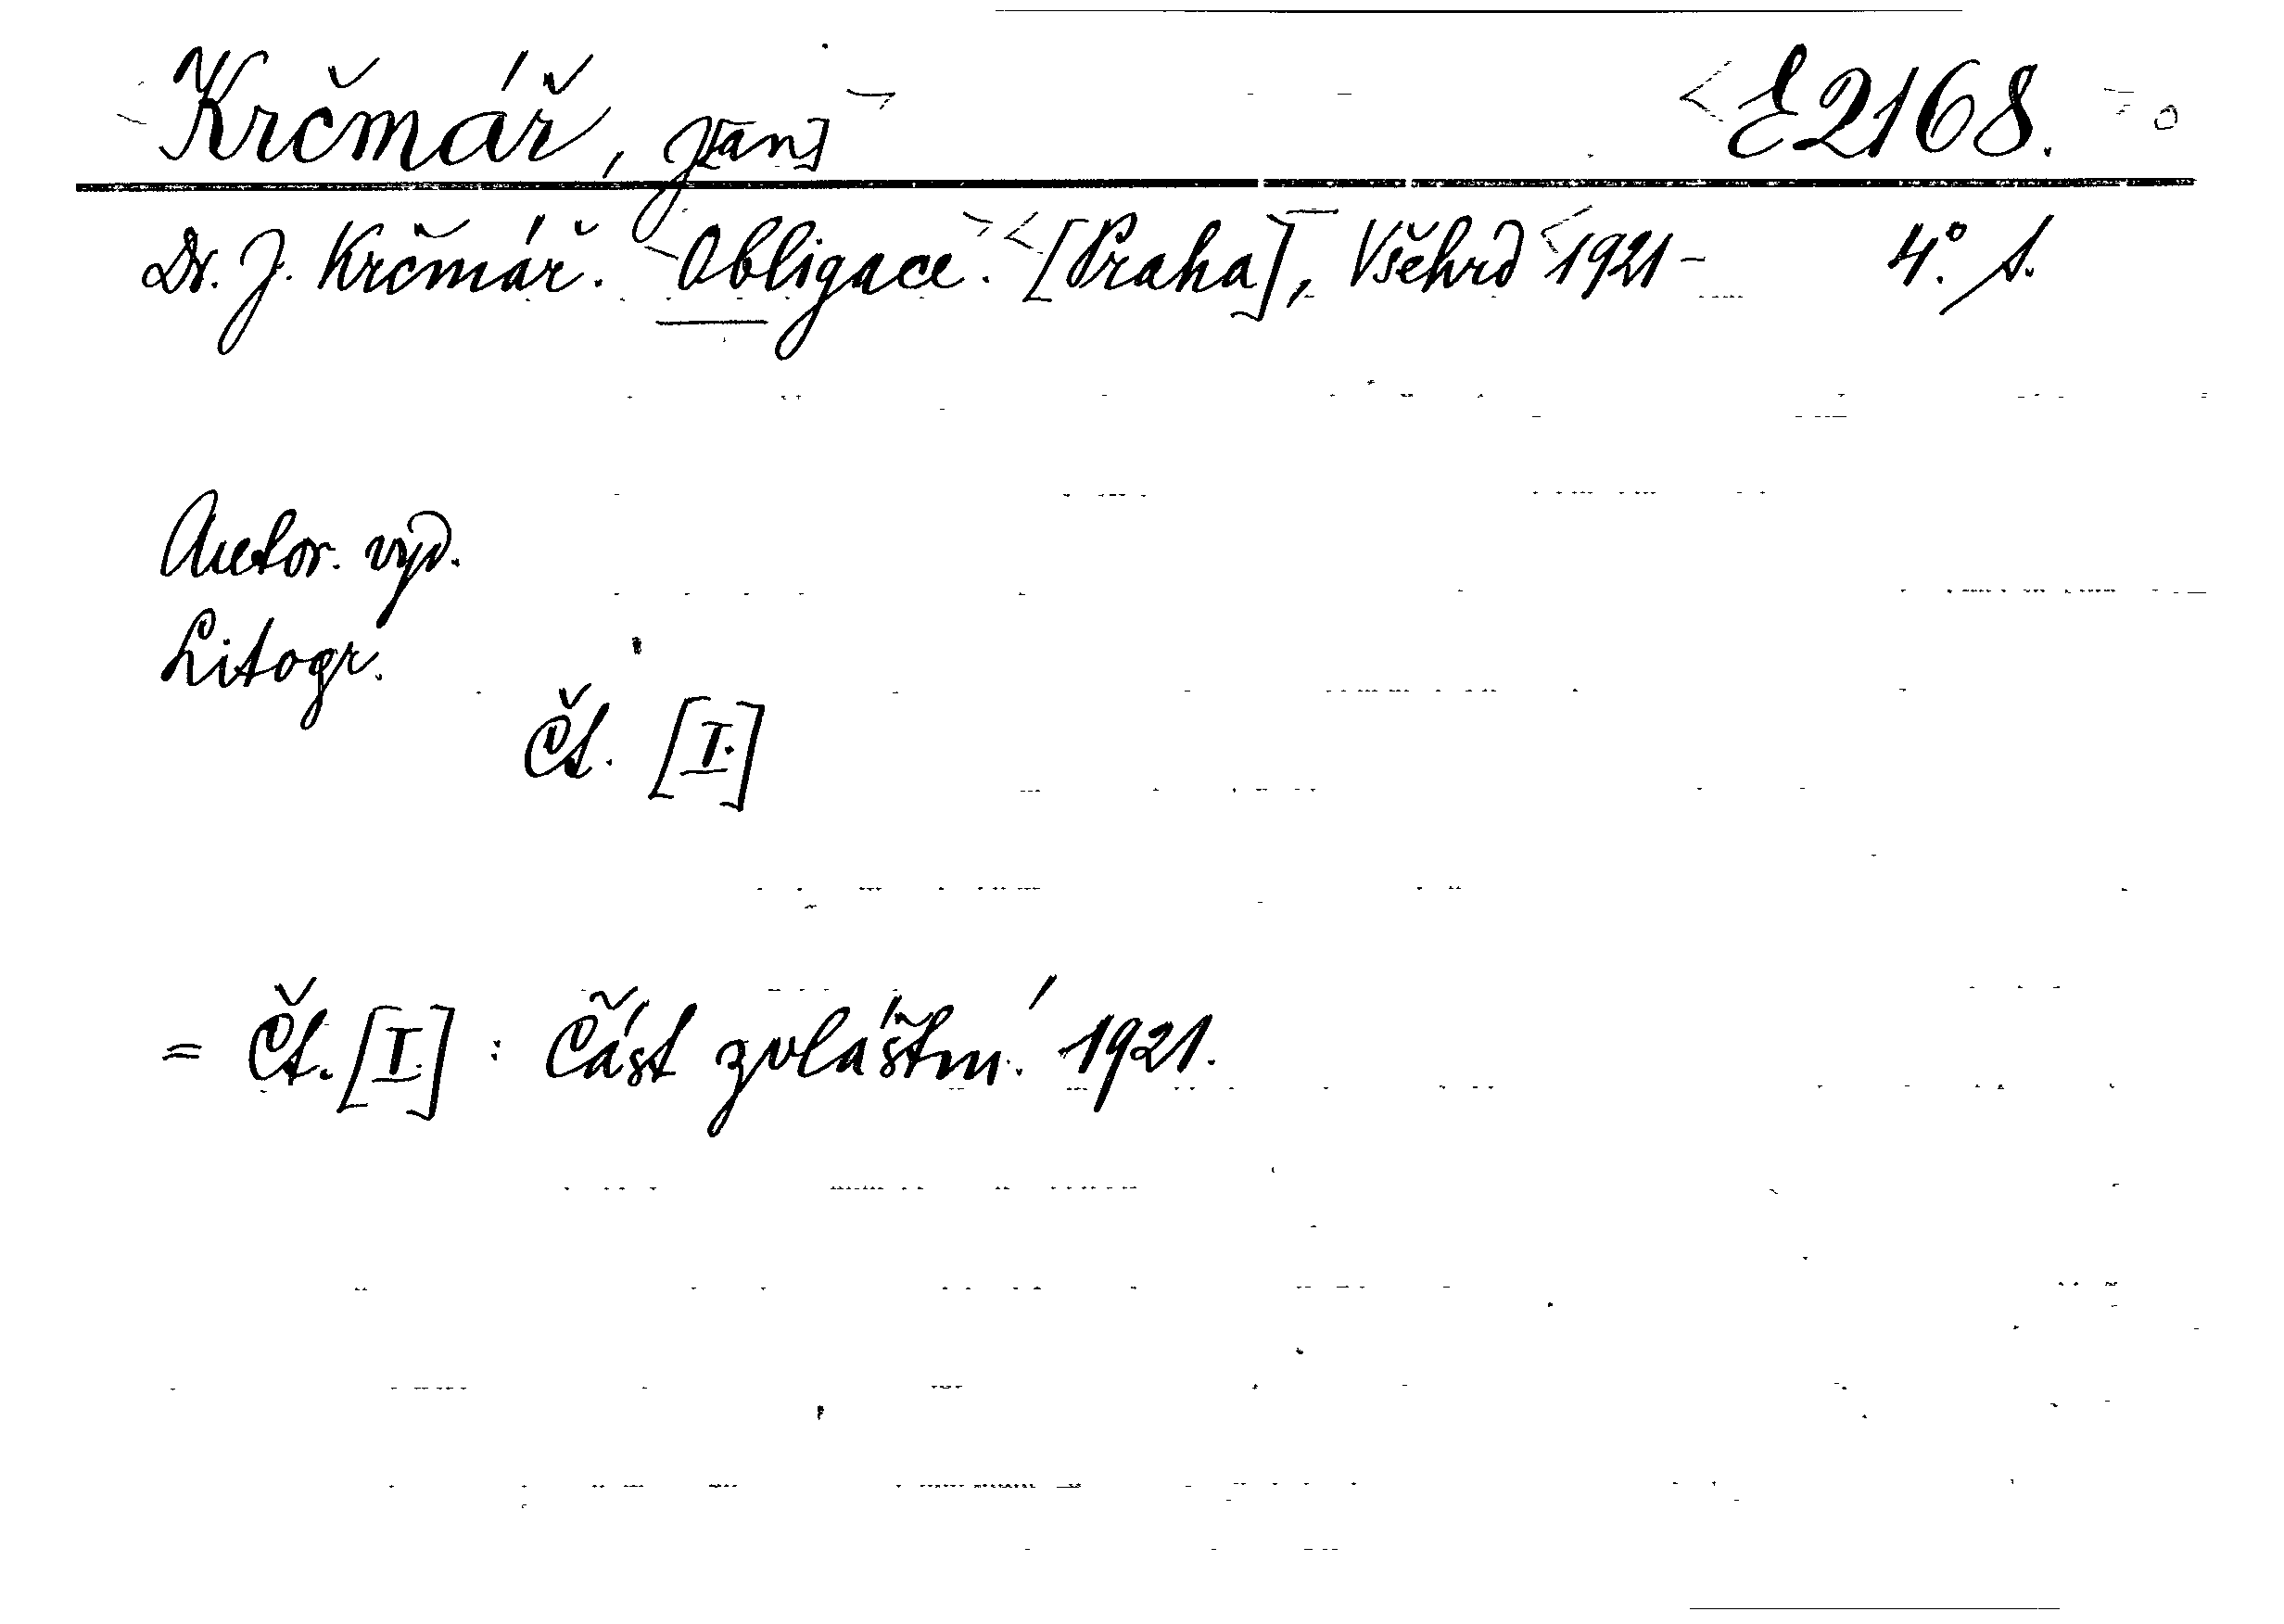 Krčmář, J[an] E 2168.
Dr. J. Krčmář. Obligace. [Praha], Všehrd 1921- 4°. s.
Autor. vyd.
Litogr.
Čt. [I.]
= Čt. [I.] : Část zvláštní. 1921.